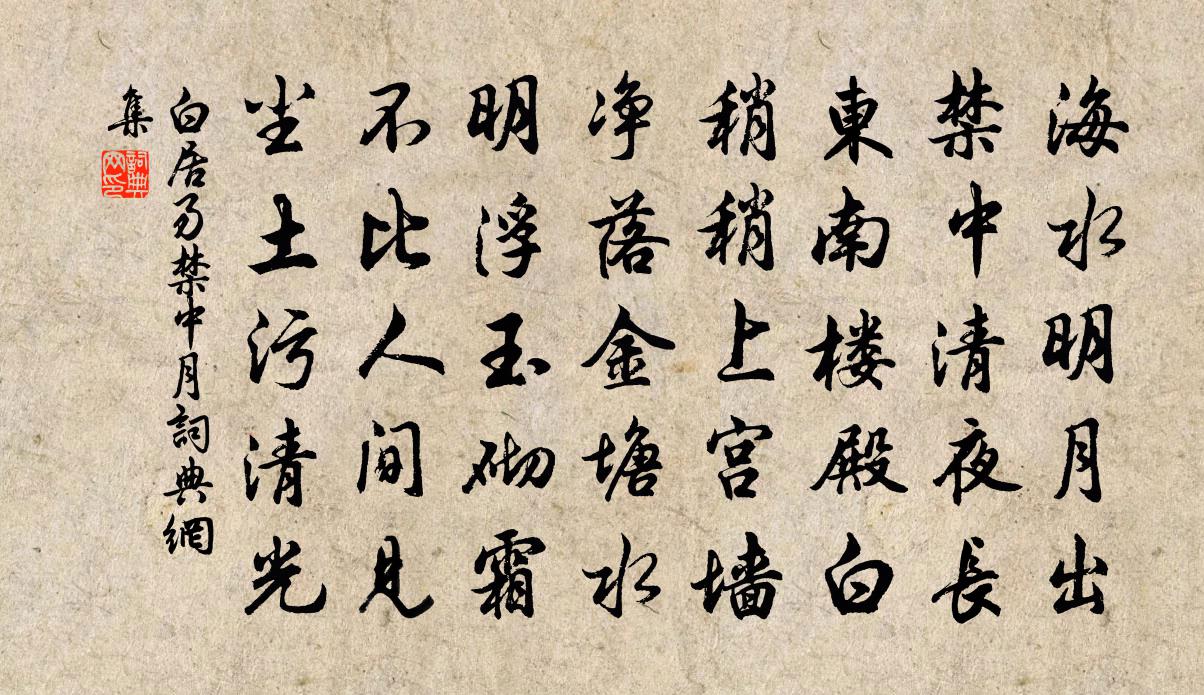 海水明月出
禁中清夜長
東南楼殿白
稍稍上宫墙
净落金塘水
明浮玉砌霜
不比人间见
尘土污清光
白居易禁中月詞典網
集
詞典网印